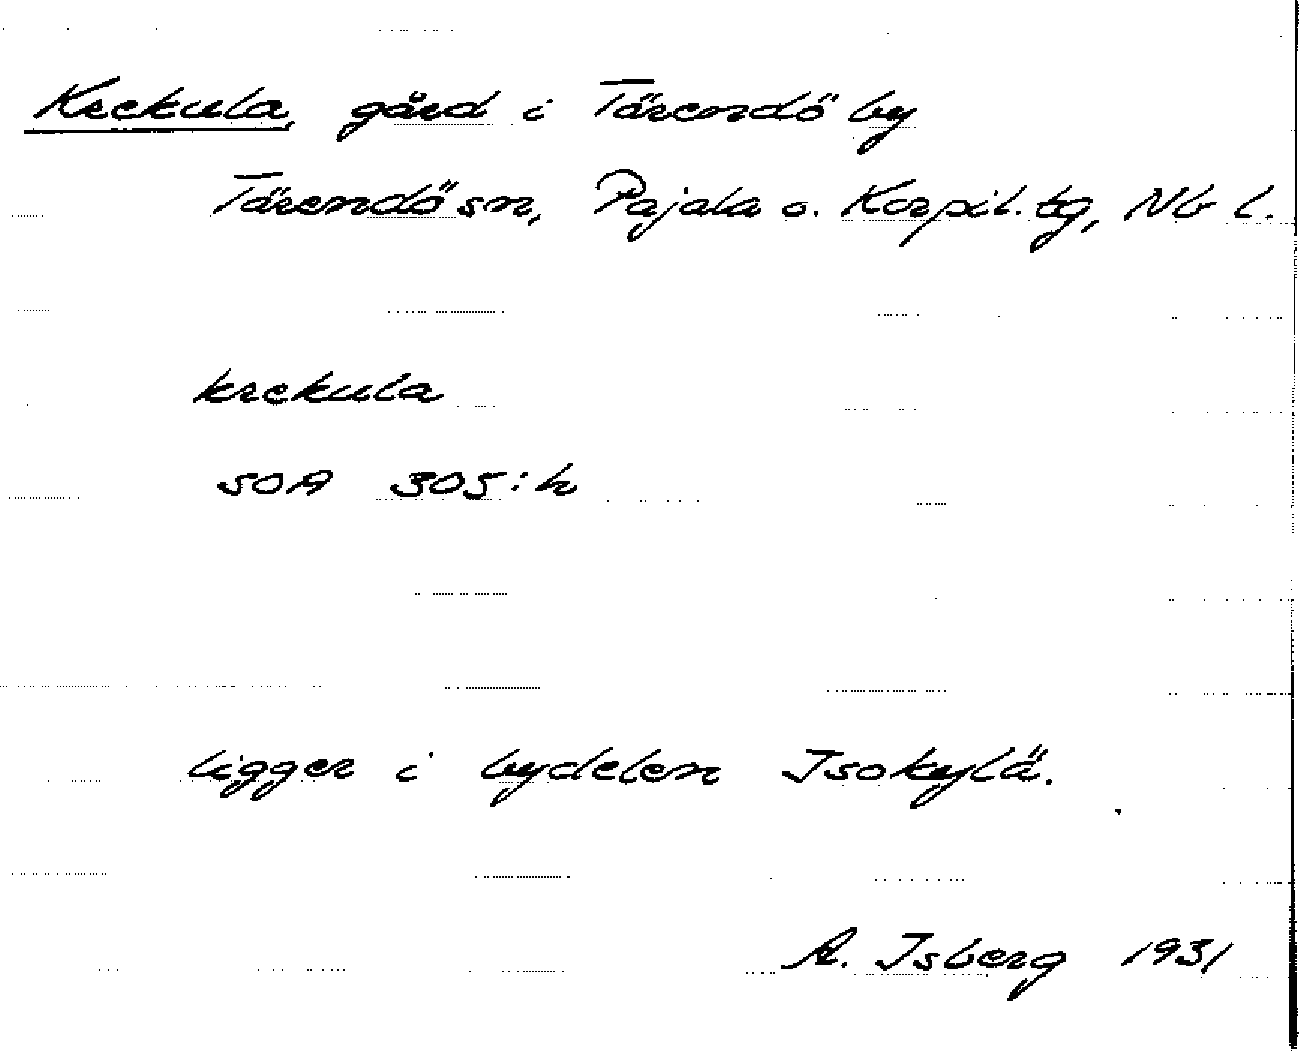 Krekula, gård i Tärendö by
Tärendö sn, Pajala o. Korpil. tg, Nb l.
krekula
SOA 305:h
ligger i bydelen Isokylä.
A. Isberg 1931